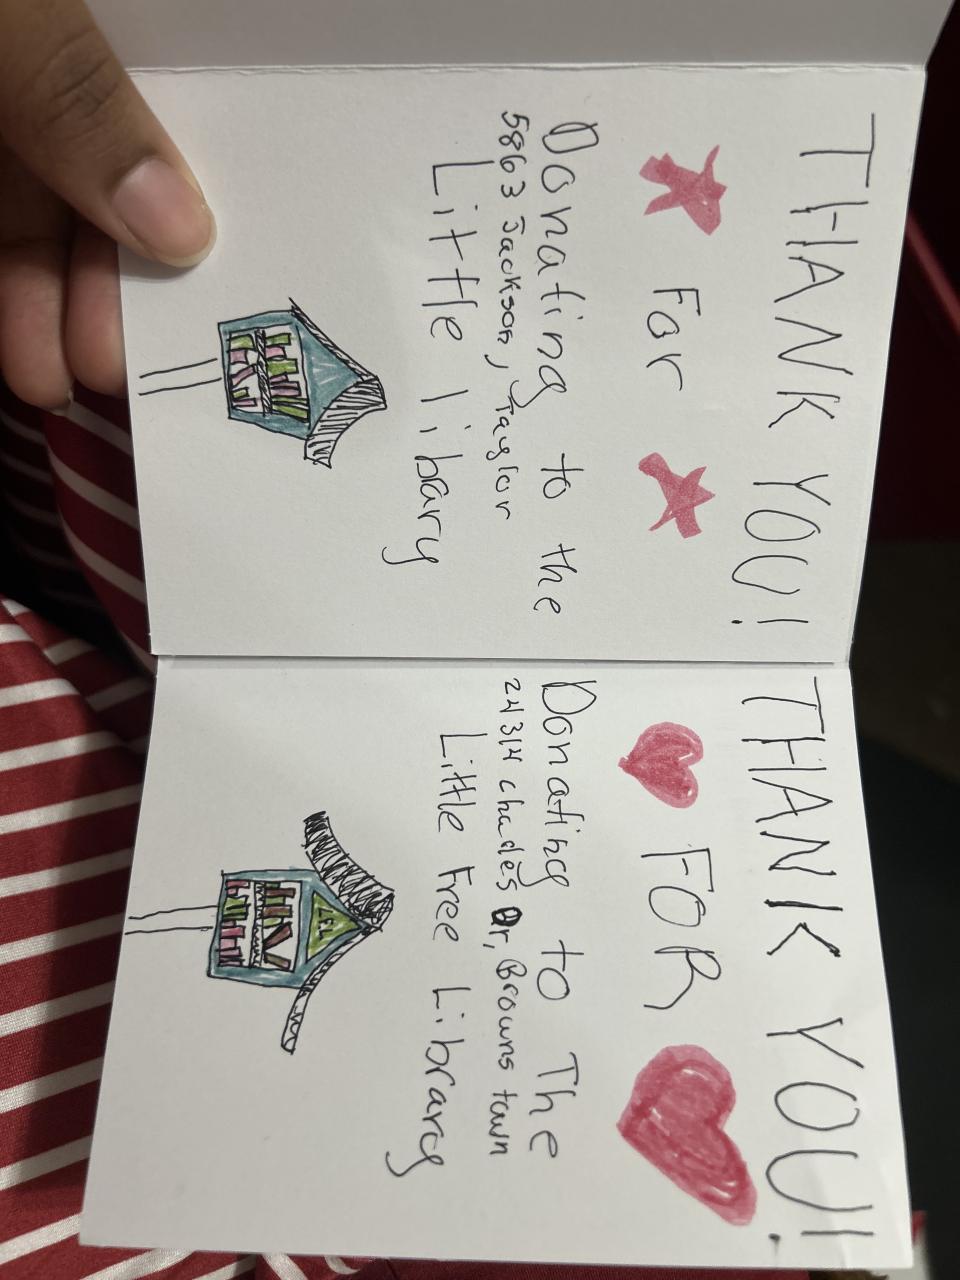 THANK YOU!
For
Donating to the
5863 Jackson, Taylor
Little libary
THANK YOU!
FOR
Donating to The
24314 charles Dr, Browns town
Little Free Librarg
LFL